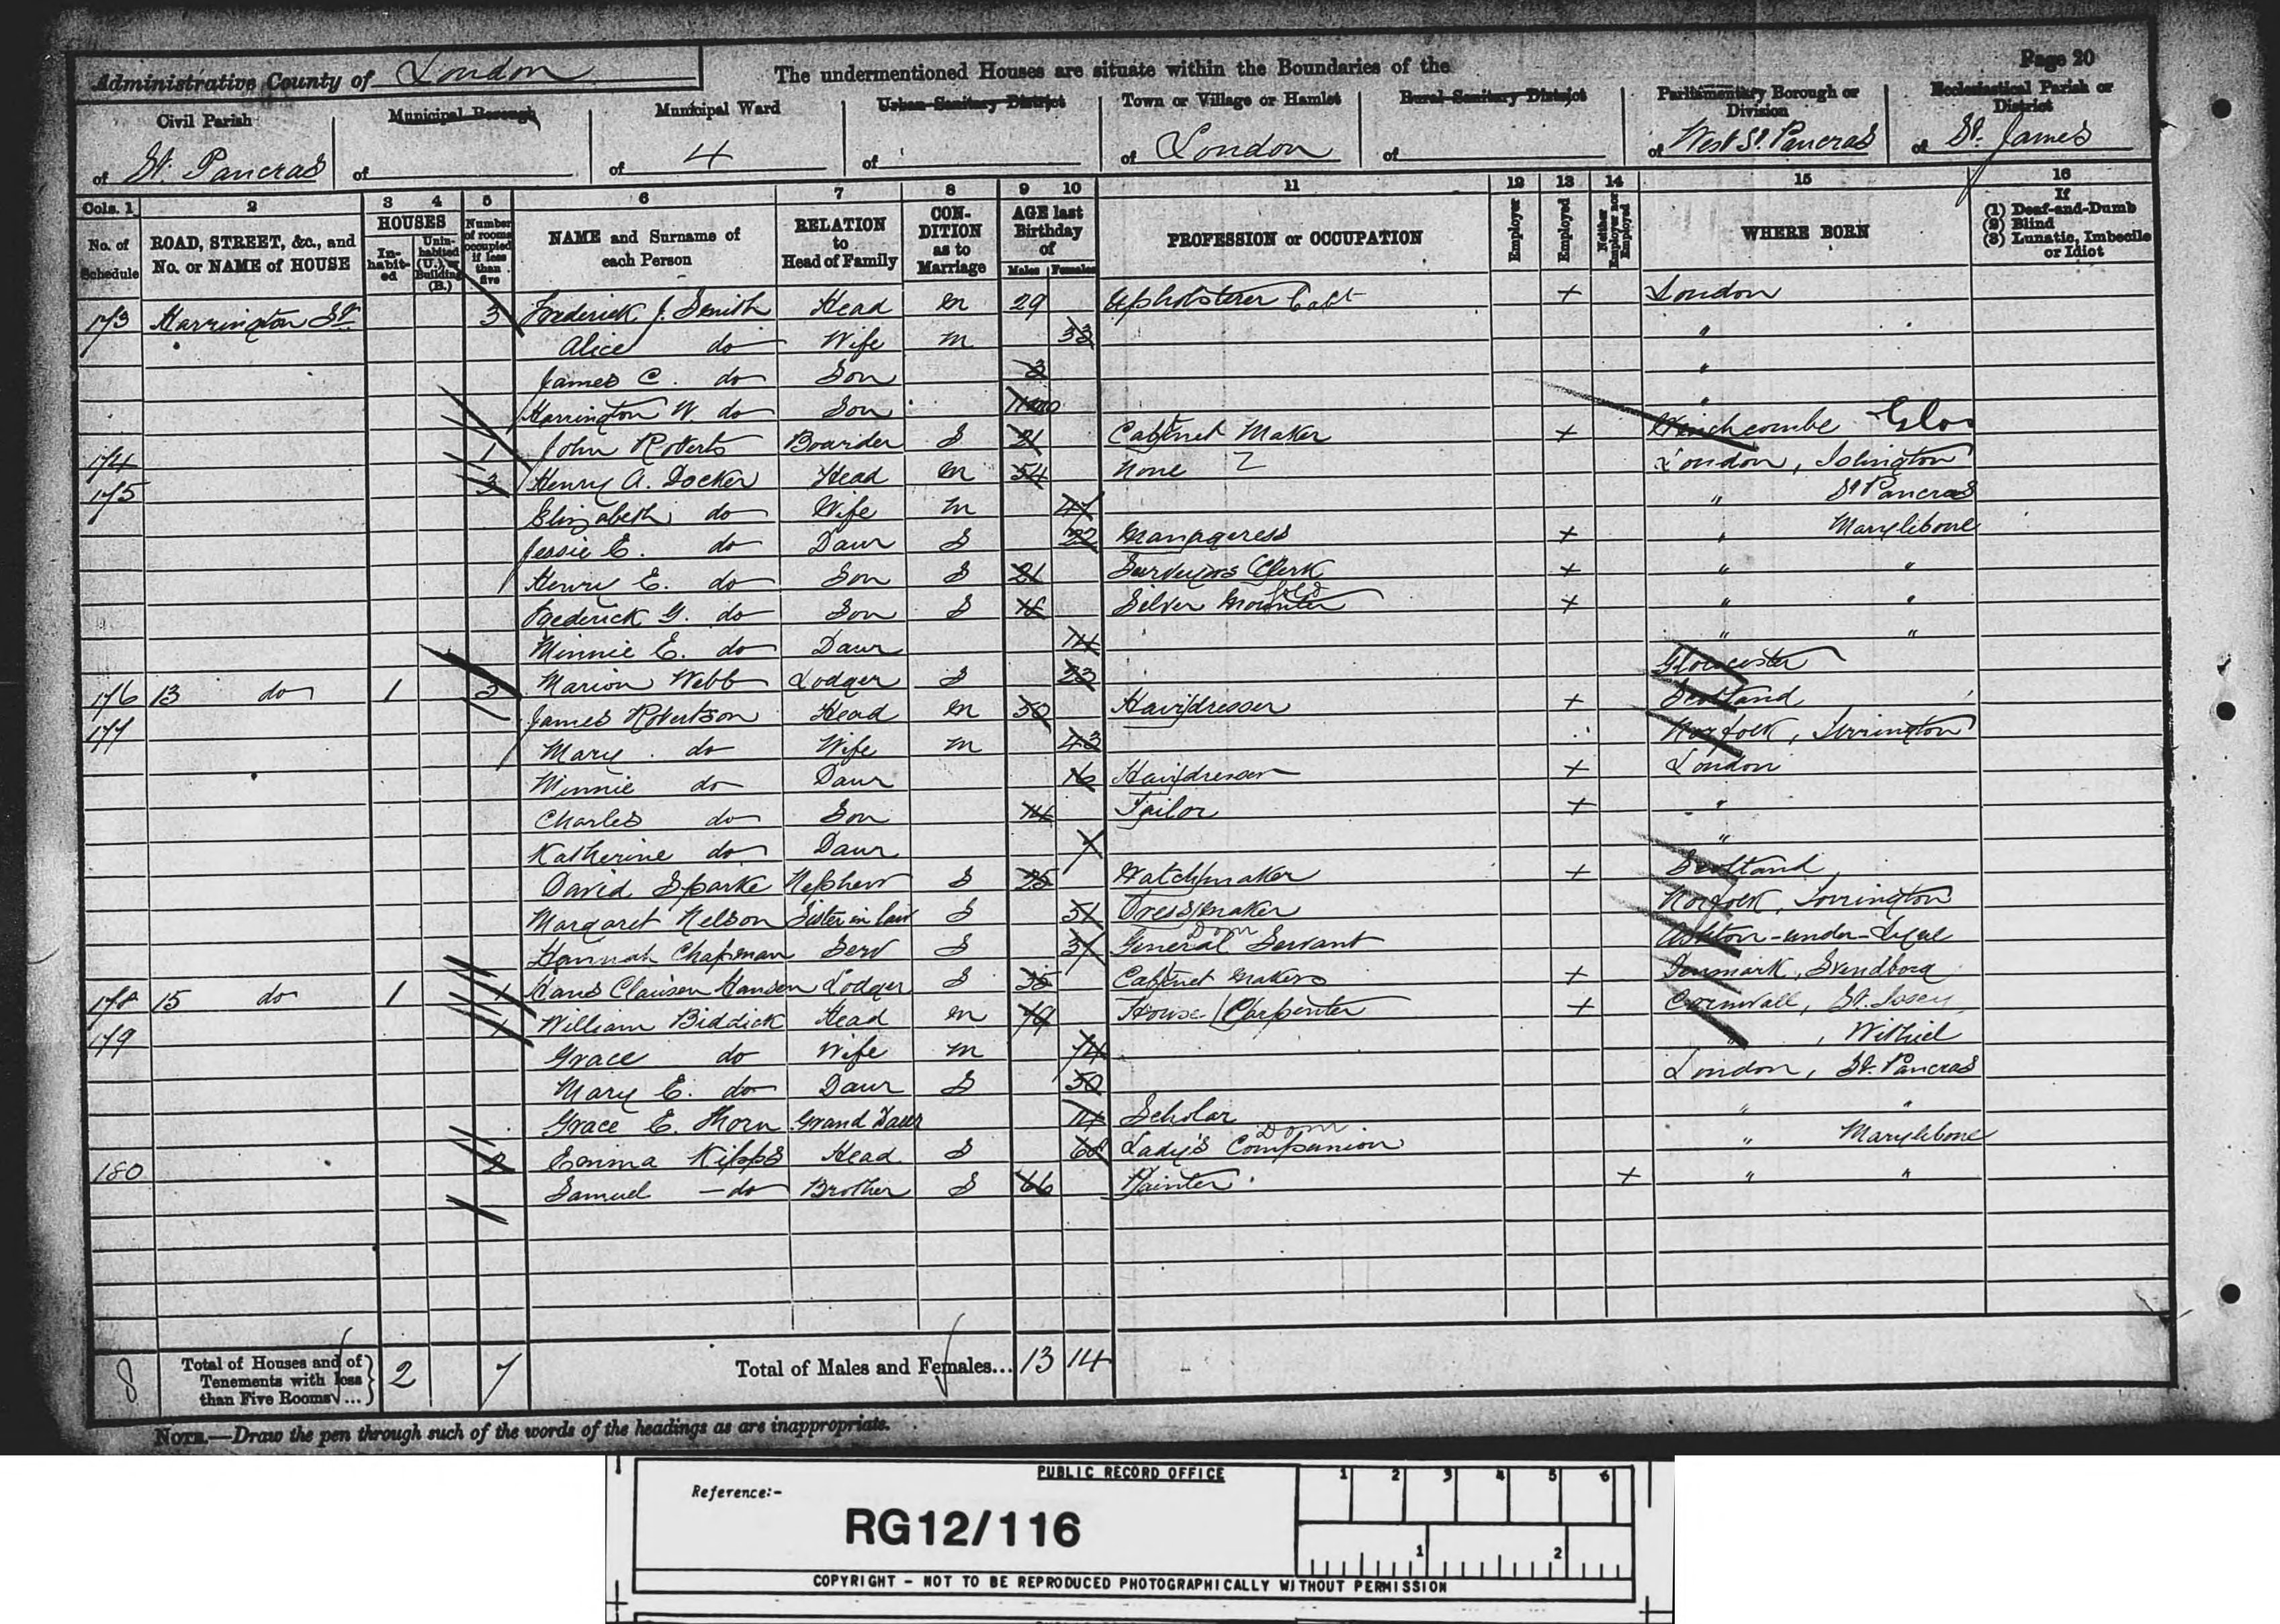 Page 20
Administrative County of London
The undermentioned Houses are situate within the Boundaries of the
Civil Parish
of St. Pancras
Municipal Borough
of
Municipal Ward
of 4
Urban Sanitary District
of
Town or Village or Hamlet
of London
Rural Sanitary District
of
Parliamentary Borough or Division
of West St. Pancras
Ecclesiastical Parish or District
of St. James
Cols. 1 2 3 4 5 6 7 8 9 10 11 12 13 14 15 16
No. of Schedule
ROAD, STREET, &c., and No. or NAME of HOUSE
HOUSES
Inhabited
Uninhabited (U.), or Building (B.)
Number of rooms occupied if less than five
NAME and Surname of each Person
RELATION to Head of Family
CONDITION as to Marriage
AGE last Birthday of
Males Females
PROFESSION or OCCUPATION
Employer
Employed
Neither Employer nor Employed
WHERE BORN
If
(1) Deaf-and-Dumb
(2) Blind
(3) Lunatic, Imbecile or Idiot
173 Harrington St. 3 Frederick J. Smith Head M 29 Upholsterer Cabt X London
Alice do Wife M 33 "
James C. do Son 3 "
Harrington W. do Son "
174 1 John Roberts Boarder S 21 Cabinet Maker X Winchcombe Glos
175 3 Henry A. Docker Head M 54 None London, Islington
Elizabeth do Wife M 47 " St Pancras
Jessie E. do Daur S 22 Manageress X " Marylebone
Henry E. do Son S 21 Surveyors Clerk X " "
Frederick G. do Son S 18 Silver Mounter X " "
Minnie E. do Daur 14 " "
176 13 do 1 3 Marion Webb Lodger S 23 Gloucester
177 James Robertson Head M 50 Hairdresser X Scotland
Mary do Wife M 43 Norfolk, Terrington
Minnie do Daur 16 Hairdresser X London
Charles do Son 14 Tailor X "
Katherine do Daur 7 "
David Sparke Nephew S 25 Watchmaker X Scotland
Margaret Nelson Sister in law S 51 Dressmaker Norfolk, Torrington
Hannah Chapman Serv S 37 General Servant Dom Ashton-under-Lyne
178 15 do 1 1 Hans Clausen Hansen Lodger S 35 Cabinet Maker X Denmark, Svendborg
179 1 William Biddick Head M 79 House Carpenter X Cornwall, St.
Grace do Wife M 74 " , Withiel
Mary E. do Daur S 50 London, St. Pancras
Grace E. Thorn Grand Daur 14 Scholar " "
180 2 Emma Kipps Head S 68 Lady's Companion Dom " Marylebone
Samuel — do Brother S 66 Painter X " "
8 Total of Houses and of Tenements with less than Five Rooms ... 2 7 Total of Males and Females... 13 14
NOTE.—Draw the pen through such of the words of the headings as are inappropriate.
PUBLIC RECORD OFFICE
1 2 3 4 5 6
Reference:-
RG12/116
1 2
COPYRIGHT - NOT TO BE REPRODUCED PHOTOGRAPHICALLY WITHOUT PERMISSION